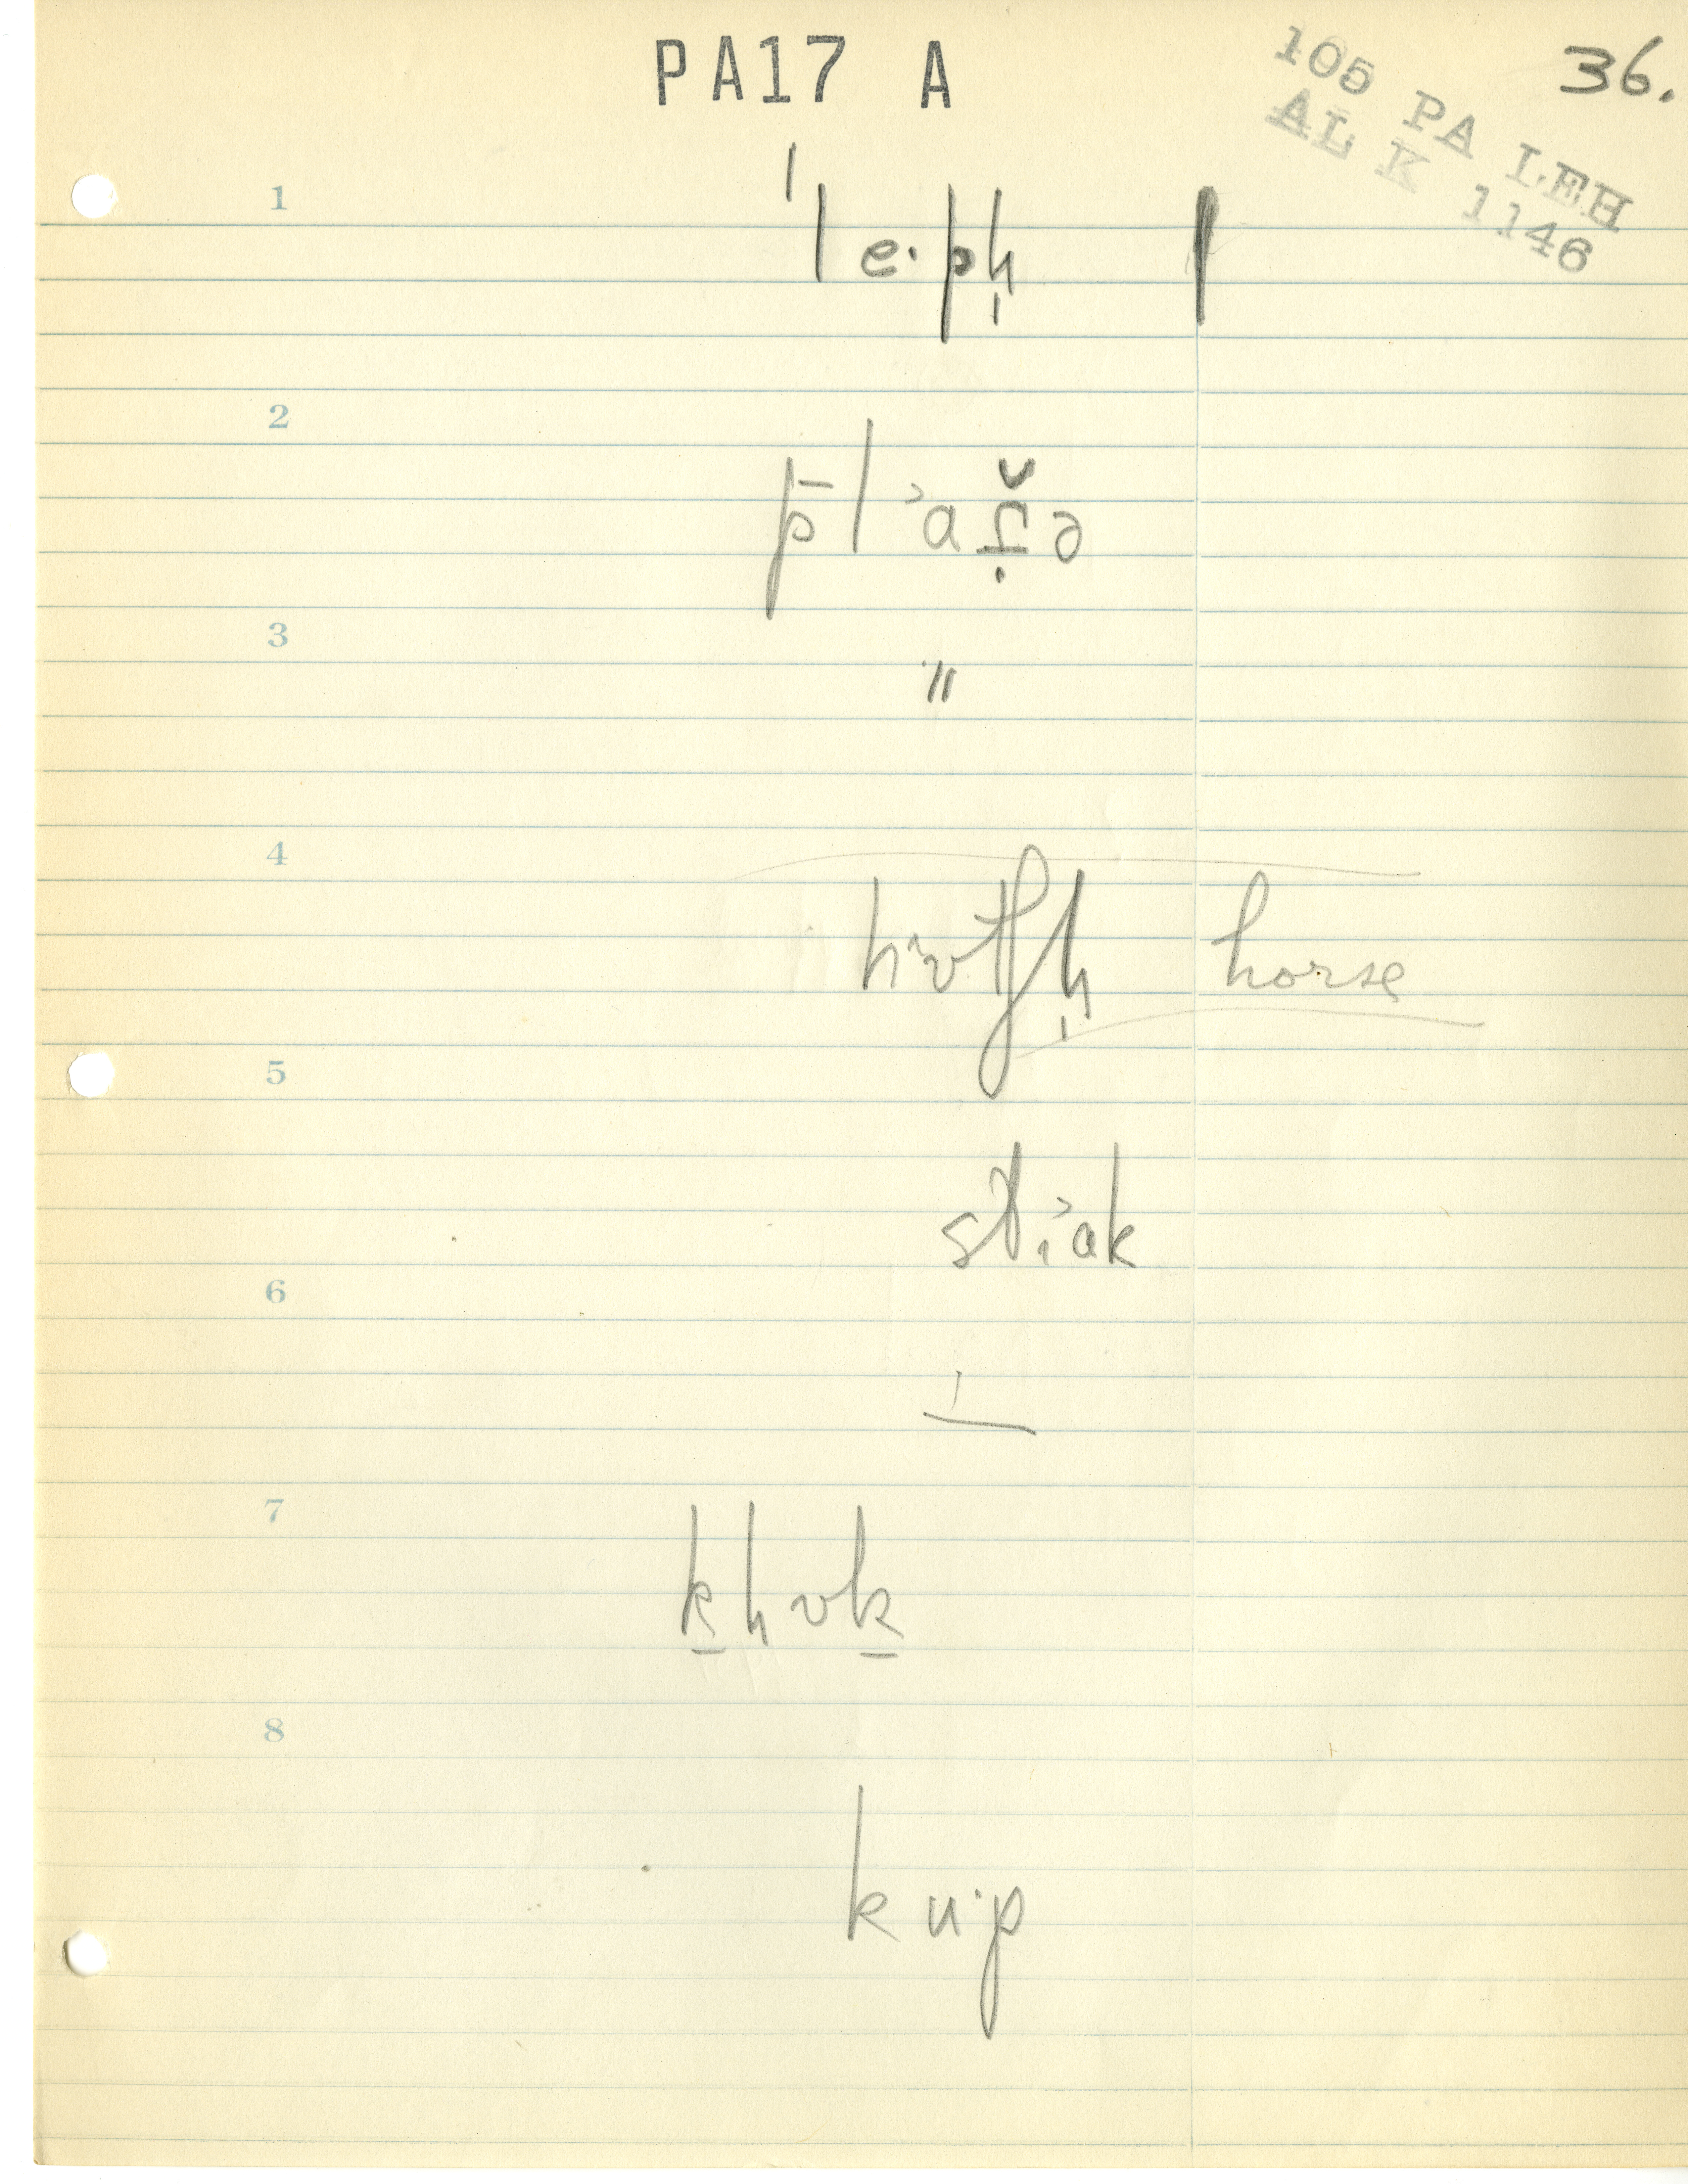 PA17 A
36.
105 PA LEH
AL K 1146
1
ˈle·pḥ
2
3
"
4
horse
5
6
7
k̠hʋk̠
8
ku·p